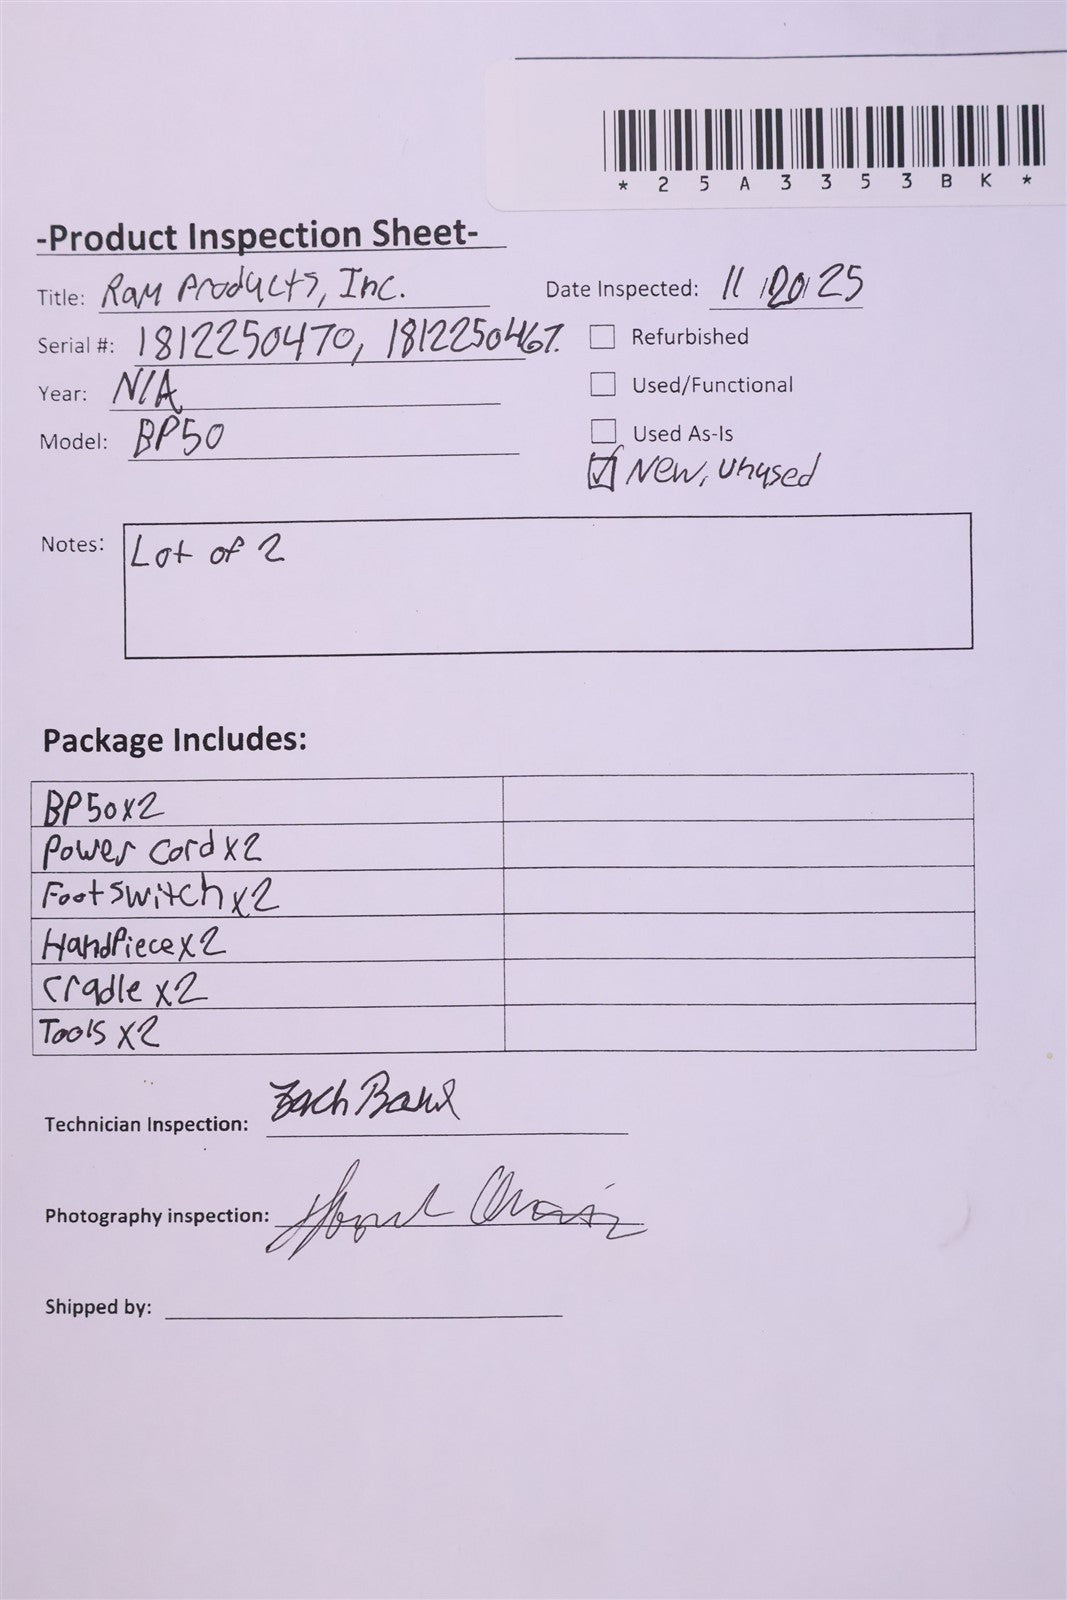 *25A3353BK*
-Product Inspection Sheet-
Title: Ram Products, Inc.
Date Inspected: 11/20/25
Serial #: 1812250470, 1812250467.
Refurbished
Year: N/A
Used/Functional
Model: BP50
Used As-Is
New, unused
Notes: Lot of 2
Package Includes:
BP50x2
Power cord x2
Footswitch x2
HandPiece x2
Cradle x2
Tools x2
Technician Inspection: Zach
Photography inspection:
Shipped by: